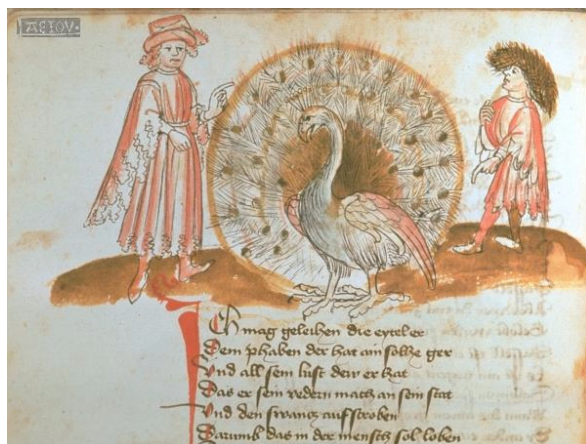 AEIOV
Ich mag geleihen die eytel er
Dem phaben der hat ain solhe ger
Vnd all sein lust dein er hat
Das er sein vedern mach an sein stat
Vnd den swantz auffstroben
Darumb das in der mensch sol loben